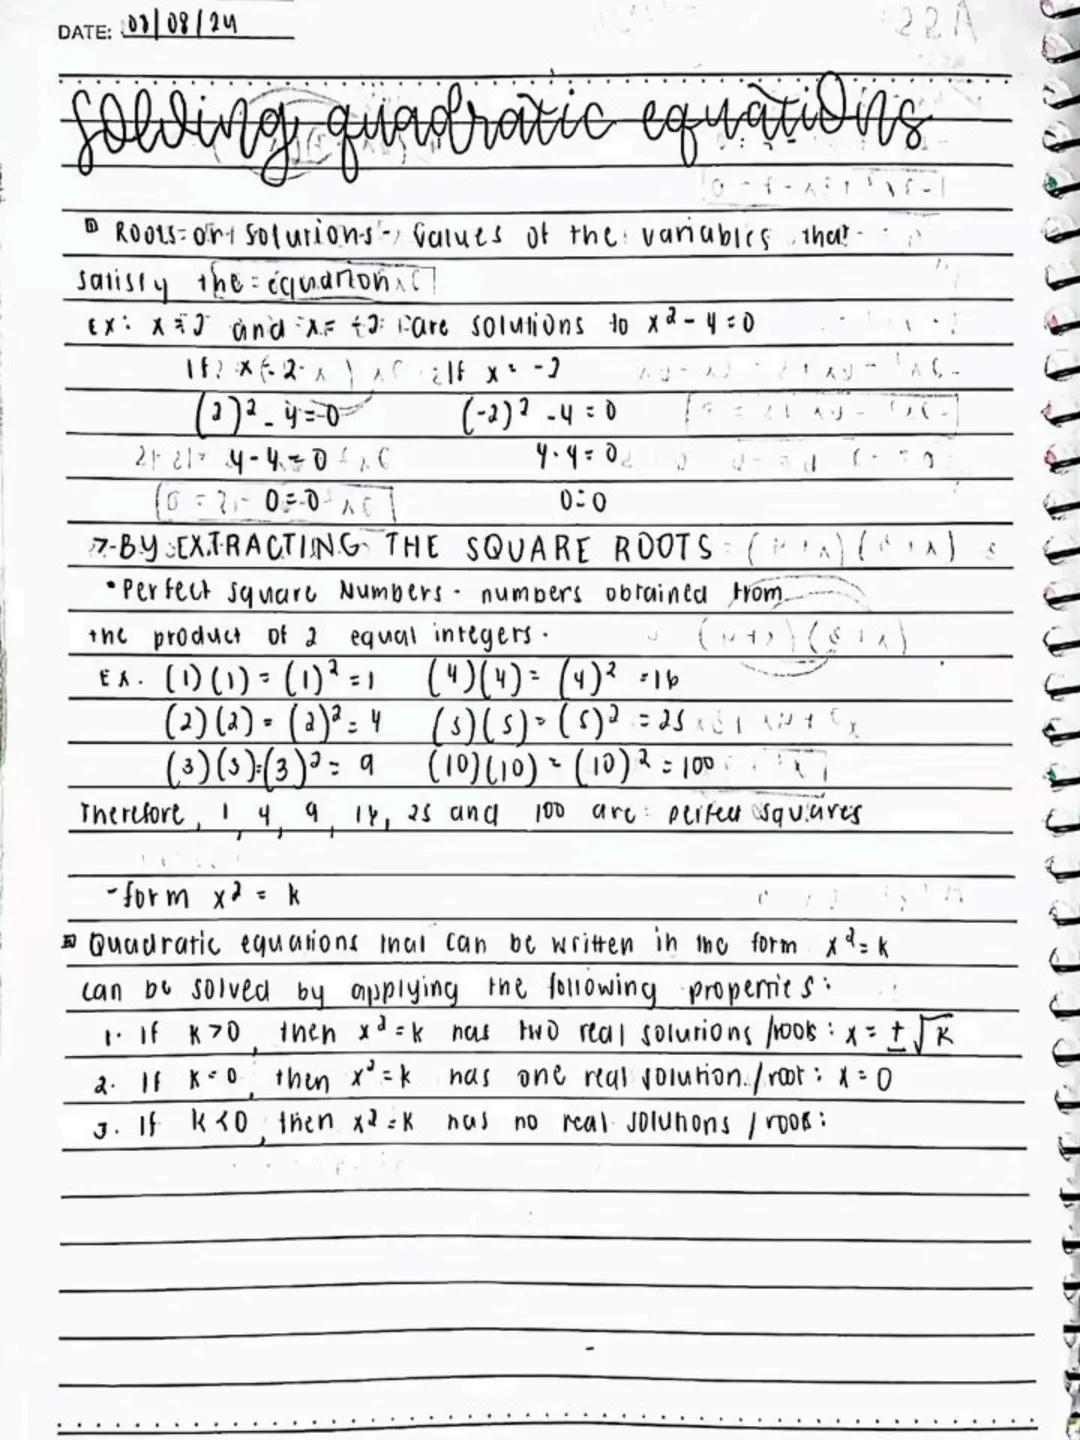 DATE: 08/08/24
Solving quadratic equations
Roots or solutions - values of the variables that
satisfy the equation
Ex: x = 2 and x = -2 are solutions to x² - 4 = 0
If x = 2 If x = -2
(2)² - 4 = 0 (-2)² - 4 = 0
4 - 4 = 0 4 - 4 = 0
0 = 0 0 = 0
7-BY EXTRACTING THE SQUARE ROOTS
• Perfect Square Numbers - numbers obtained from
the product of 2 equal integers.
Ex. (1)(1) = (1)² = 1 (4)(4) = (4)² = 16
(2)(2) = (2)² = 4 (5)(5) = (5)² = 25
(3)(3) = (3)² = 9 (10)(10) = (10)² = 100
Therefore, 1, 4, 9, 16, 25 and 100 are perfect squares
- form x² = k
Quadratic equations that can be written in the form x² = k
can be solved by applying the following properties:
1. If k > 0, then x² = k has two real solutions / roots: x = ± √k
2. If k = 0, then x² = k has one real solution / root: x = 0
3. If k < 0, then x² = k has no real solutions / roots: